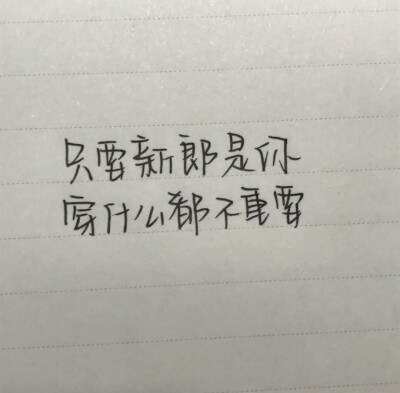 只要新郎是你
穿什么都不重要